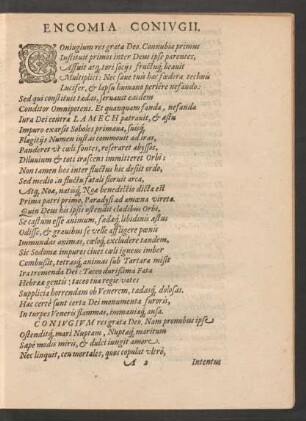 ENCOMIA CONIVGII.
COniugium res grata Deo. Connubia primus
Instituit primos inter Deus ipse parentes,
Assuit atq; tori socijs fructuq; beauit
Multiplici: Nec saue tuis hac fœdera technis
Lucifer, & lapsu humano periere nefando:
Sed qui constituit tedas, seruauit easdem
Conditor Omnipotens. Et quanquam fanda, nefanda
Iura Dei contra LAMECH patrauit, & astu
Impuro exarsit Soboles primæua, suisq;
Flagitijs Numen iustas commouit ad iras,
Panderet vt cœli fontes, referatet abyssos,
Diluuium & toti irascens immitteret Orbi:
Non tamen hos inter fluctus hic desijt ordo,
Sed medio in fluctu fatali floruit arca,
Atq; Noæ, natisq; Noæ benedictio dicta est
Prima patri primo, Paradysi ad amœna vireta.
Quin Deus his ipsis ostendit cladibus Orbi,
Se castum esse animum, fœdaq; libidinis æstus
Odisse, & grauibus se velle affligere pœnis
Immundas animas, cœloq; excludere tandem,
Sic Sodomæ impuros ciues cœli ignem imber
Combussit, tetrasq; animas sub Tartara misit
Ira tremenda Dei: Taceo durissima Fata
Hebreæ gentis: taceo tua regie vates
Supplicia horrendam ob Venerem, tædasq; dolosas.
Hæc certè sunt certa Dei monumenta furoris,
In turpes Veneris flammas, immaniaq; ausa.
CONIVGIVM res grata Deo. Nam pronubus ipse
Ostenditq; mari Nuptam, Nuptæq; maritum
Sæpe modis miris, & dulci iungit amore.
Nec linquit, ceu mortales, quos copulat vltrò,
A 2 Intentus